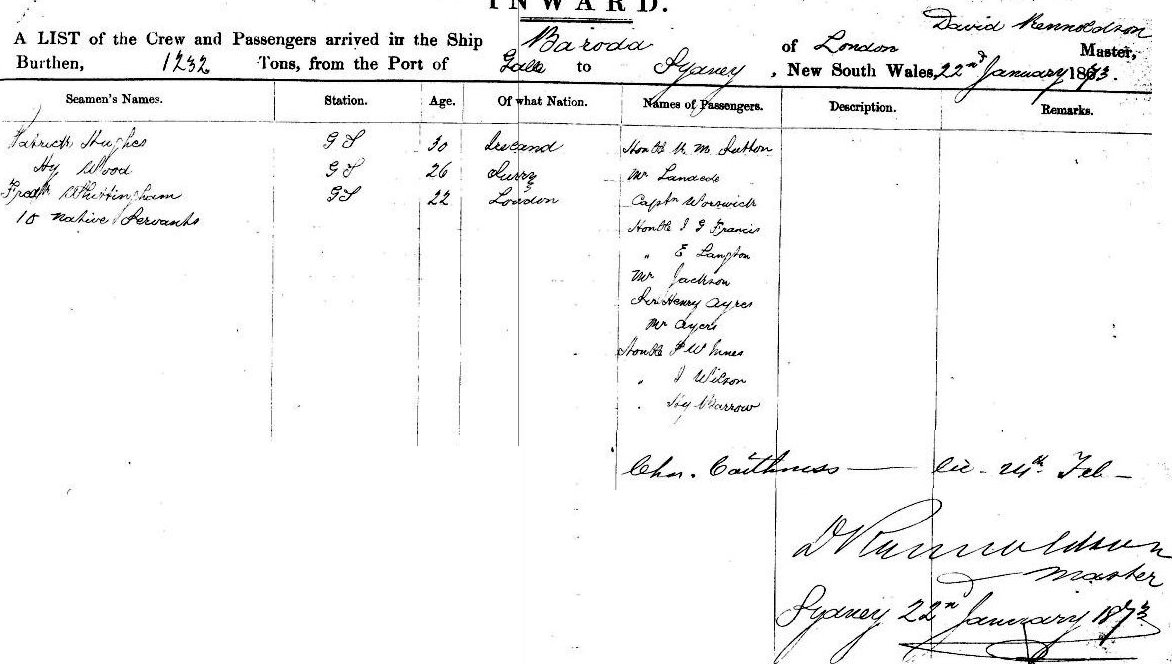 INWARD.
A LIST of the Crew and Passengers arrived in the Ship Baroda of London David Rennoldson Master,
Burthen, 1232 Tons, from the Port of Galle to Sydney, New South Wales, 22nd January 1873.
Seamen's Names. Station. Age. Of what Nation. Names of Passengers. Description. Remarks.
Patrick Hughes G S 30 Ireland Honble M Sutton
Hy Wood G S 26 Surry Mr
Fredk Whittingham G S 22 London Captn Worswick
10 Native Servants Honble J G Francis
" E Langton
Mr Jackson
Sir Henry Ayres
Mr Ayers
Honble F W Innes
" J Wilson
" Hy
Chas. Caithness — — 24th Feb —
D Rennoldson
Master
Sydney 22nd January 1873